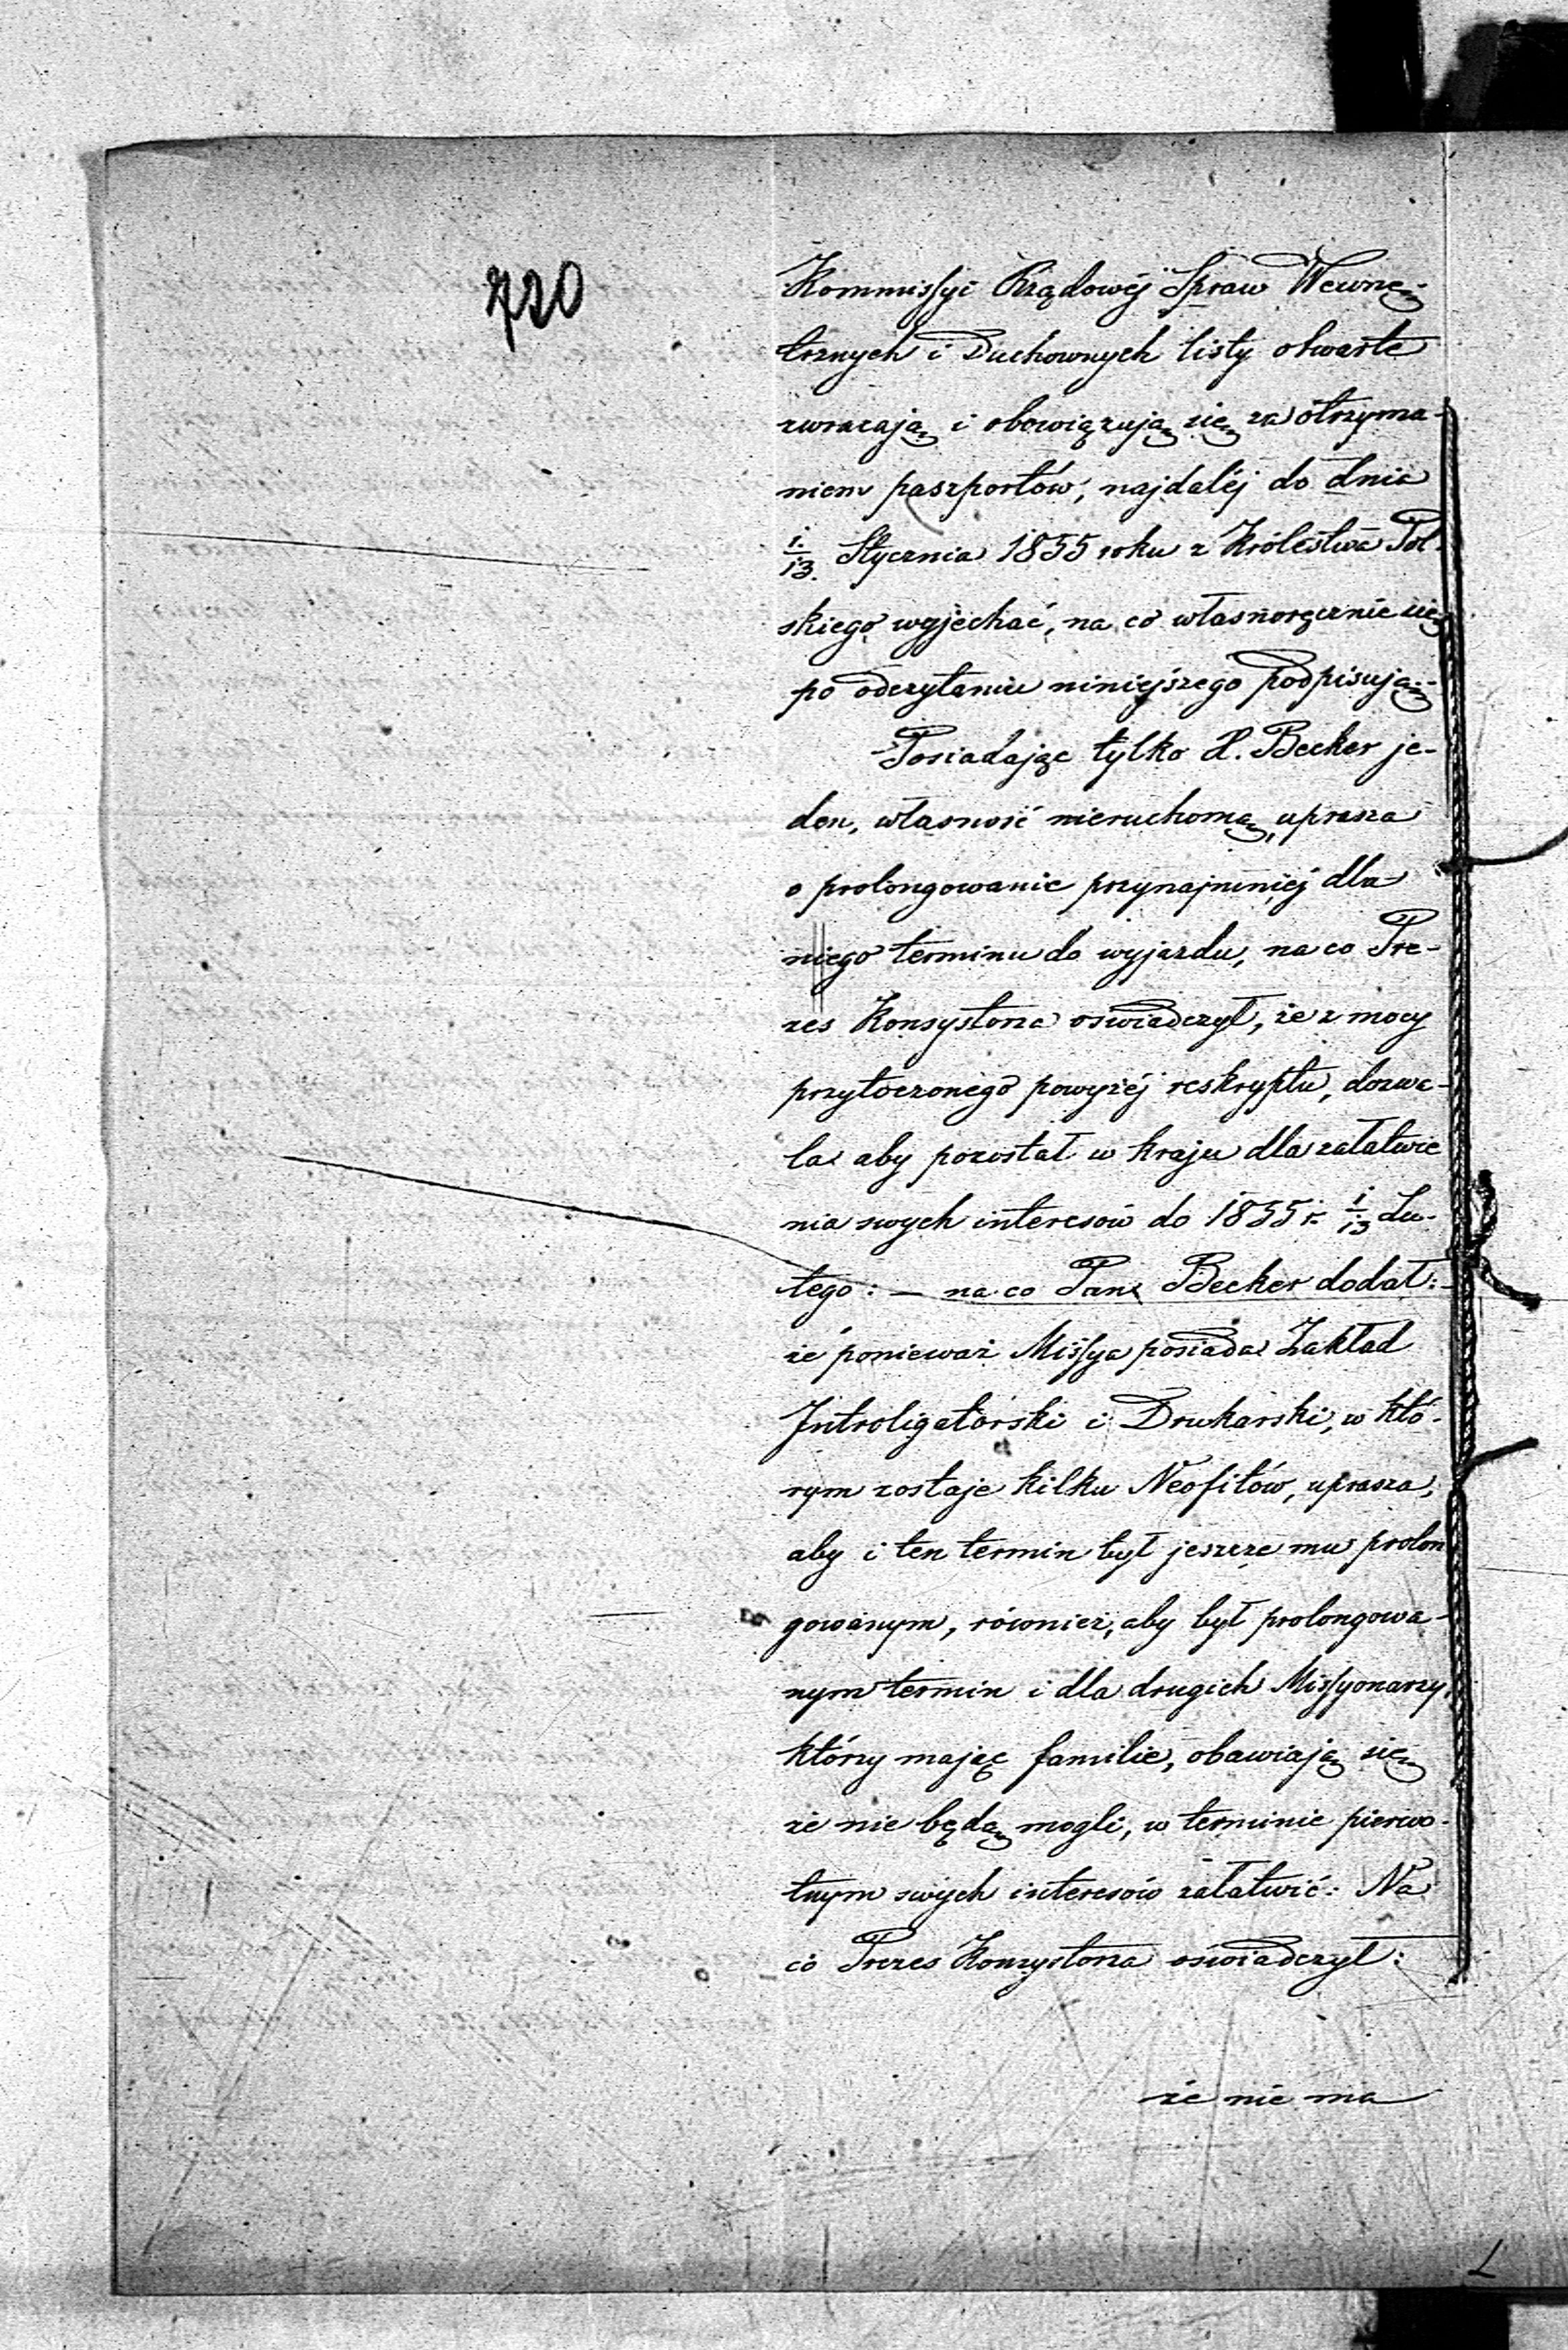 720
Kommissyi Rządowéj Spraw Wewnę-
trznych i Duchownych listy otwarte
zwracają i obowiązują się za otrzyma-
niem paszportów, najdaléj do dnia
1/13. Stycznia 1855 roku z Królestwa Pol-
skiego wyjechać, na co własnoręcznie się
po odczytaniu niniejszego podpisują.-
Posiadając tylko X. Becker je-
den, własność nieruchomą, uprasza
o prolongowanie przynajmniéj dla
niego terminu do wyjazdu, na co Pre-
zes Konsystorza oswiadczył, że z mocy
przytoczonego powyżéj reskryptu, dozwa-
la aby pozostał w kraju dla załatwie
nia swych interesów do 1855 r. 1/13 Lu-
tego: — na co Pan Becker dodał:
że ponieważ Missya posiada Zakład
Introligatorski i Drukarski, w któ-
rym zostaje kilku Neofitów, uprasza,
aby i ten termin był jeszcze mu prolon
gowanym, równiez, aby był prolongowa-
nym termin i dla drugich Missyonarzy,
którzy mając familie, obawiają się
że nie będą mogli, w terminie pierwo-
tnym swych interesów załatwić: Na
co Prezes Konsystorza oświadczył:
że nie ma